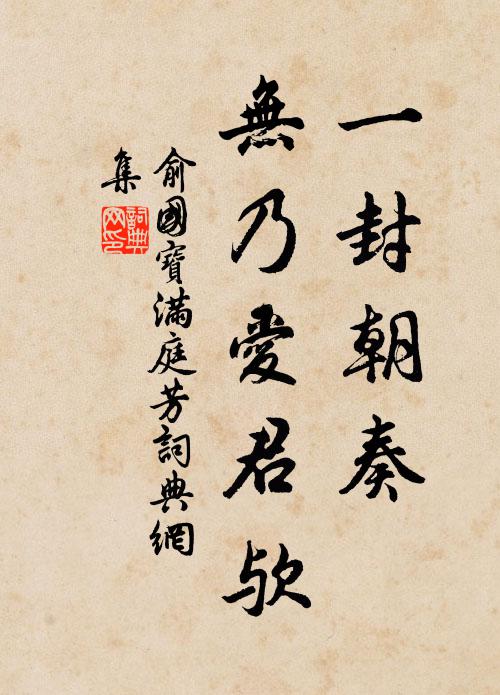 一封朝奏
無乃愛君欤
俞國寶滿庭芳詞典網
集
詞典
网印